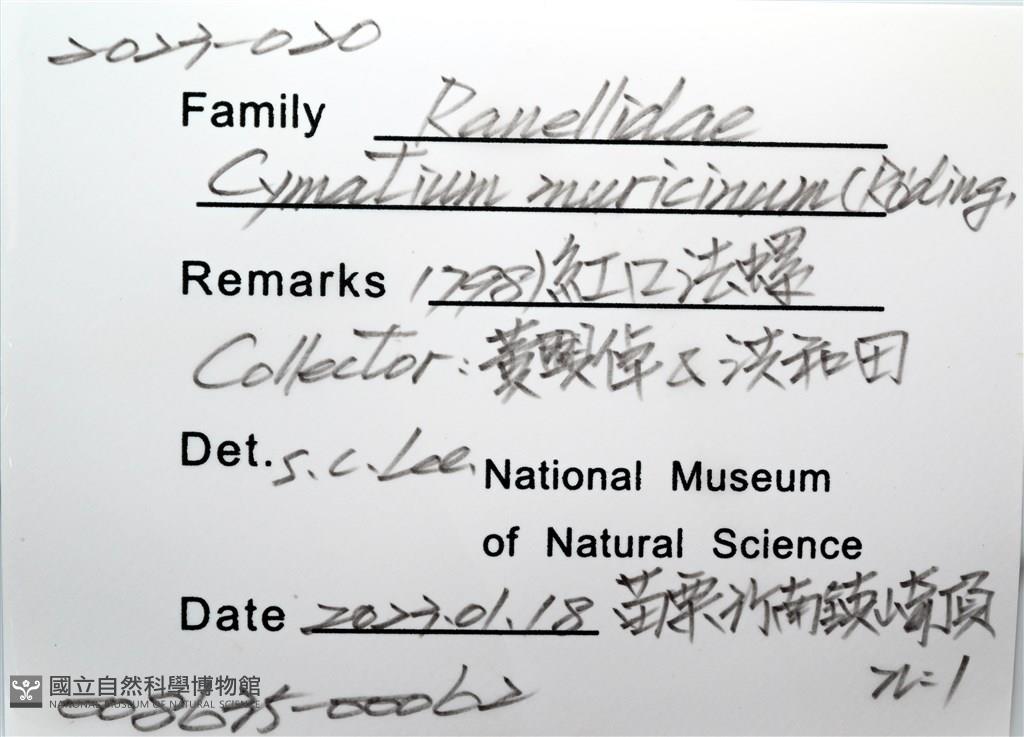 2023-020
Family Ranellidae
Cymatium muricinum (Röding,
Remarks 1798) 紅口法螺
Collector: 黃顯倬 & 洪和田
Det. S.C. Lee. National Museum
of Natural Science
Date 2023.01.18 苗栗竹南鎮崎頂
n=1
國立自然科學博物館
NATIONAL MUSEUM OF NATURAL SCIENCE
008675-00062